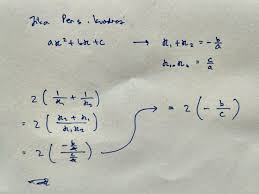 Jika Pers. kuadrat
ax² + bx + c → x₁ + x₂ = -b/a
x₁.x₂ = c/a
2(1/x₁ + 1/x₂)
= 2((x₂ + x₁)/(x₁x₂)) = 2(-b/c)
= 2((-b/a)/(c/a))